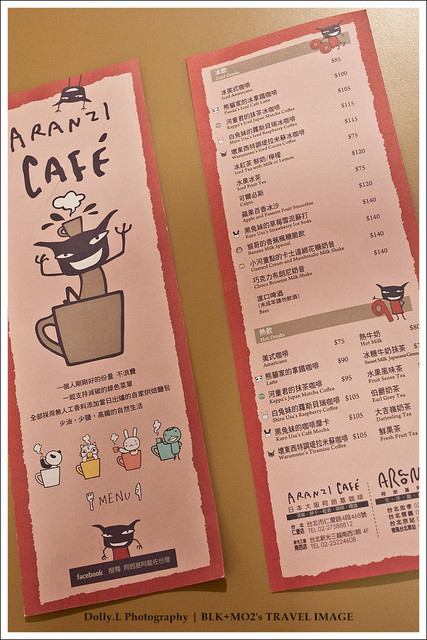 ARANZI
CAFÉ
一個人剛剛好的份量 不浪費
一起支持減碳的綠色菜單
全部採用無人工香料添加當日出爐的自家烘焙麵包
少油，少鹽，高纖的自然生活
MENU
facebook 搜尋 阿朗基阿龍佐台灣
冰飲
冰美式咖啡 $85
Iced Americano
熊貓家的冰拿鐵咖啡 $100
Panda's Iced Café Latte
河童君的抹茶冰咖啡 $105
Kappa's Iced Japan Matcha Coffee
白兔妹的蘿斯貝瑞冰咖啡 $115
Shiro Usa's Iced Raspberry Coffee
壞東西特調堤拉米蘇冰咖啡 $115
冰紅茶 鮮奶/檸檬 $75
Iced Tea with Milk or Lemon
水果冰茶 $120
Iced Fruit Tea
可爾必斯 $75
Calpis
蘋果百香冰沙 $120
Apple and Passion Fruit Smoothie
黑兔妹的草莓雪泥蘇打 $140
Kuro Usa's Strawberry Ice Soda
猴哥的香蕉風糖脆飲 $140
Banana Milk Special
小河童點的卡士達綿花糖奶昔 $140
Custard Cream and Marshmallo Milk Shake
巧克力布朗尼奶昔 $140
Choco Brownie Milk Shake
進口啤酒
(未成年請勿飲酒)
Beer
熱飲
Hot Drinks
美式咖啡 $75
Americano
熊貓家的拿鐵咖啡 $90
Latte
河童君的抹茶咖啡 $95
Kappa's Japan Matcha Coffee
白兔妹的蘿斯貝瑞咖啡 $105
Shiro Usa's Raspberry Coffee
黑兔妹的咖啡摩卡 $105
Kuro Usa's Café Mocha
壞東西特調堤拉米蘇咖啡 $105
Warumono's Tiramisu Coffee
熱牛奶 $80
Hot Milk
冰糖牛奶抹茶
水果風味茶
Fruit Sense Tea
伯爵奶茶
Earl Grey Tea
大吉嶺奶茶
Darjeeling Tea
鮮果茶
Fresh Fruit Tea
ARANZI CAFÉ
日本大阪阿朗基咖啡
台北市仁愛路4段468號
TEL 02-27588812
台北新光三越南西2館 4F
TEL 02-25224608
Dolly.L Photography | BLK+MO2's TRAVEL IMAGE